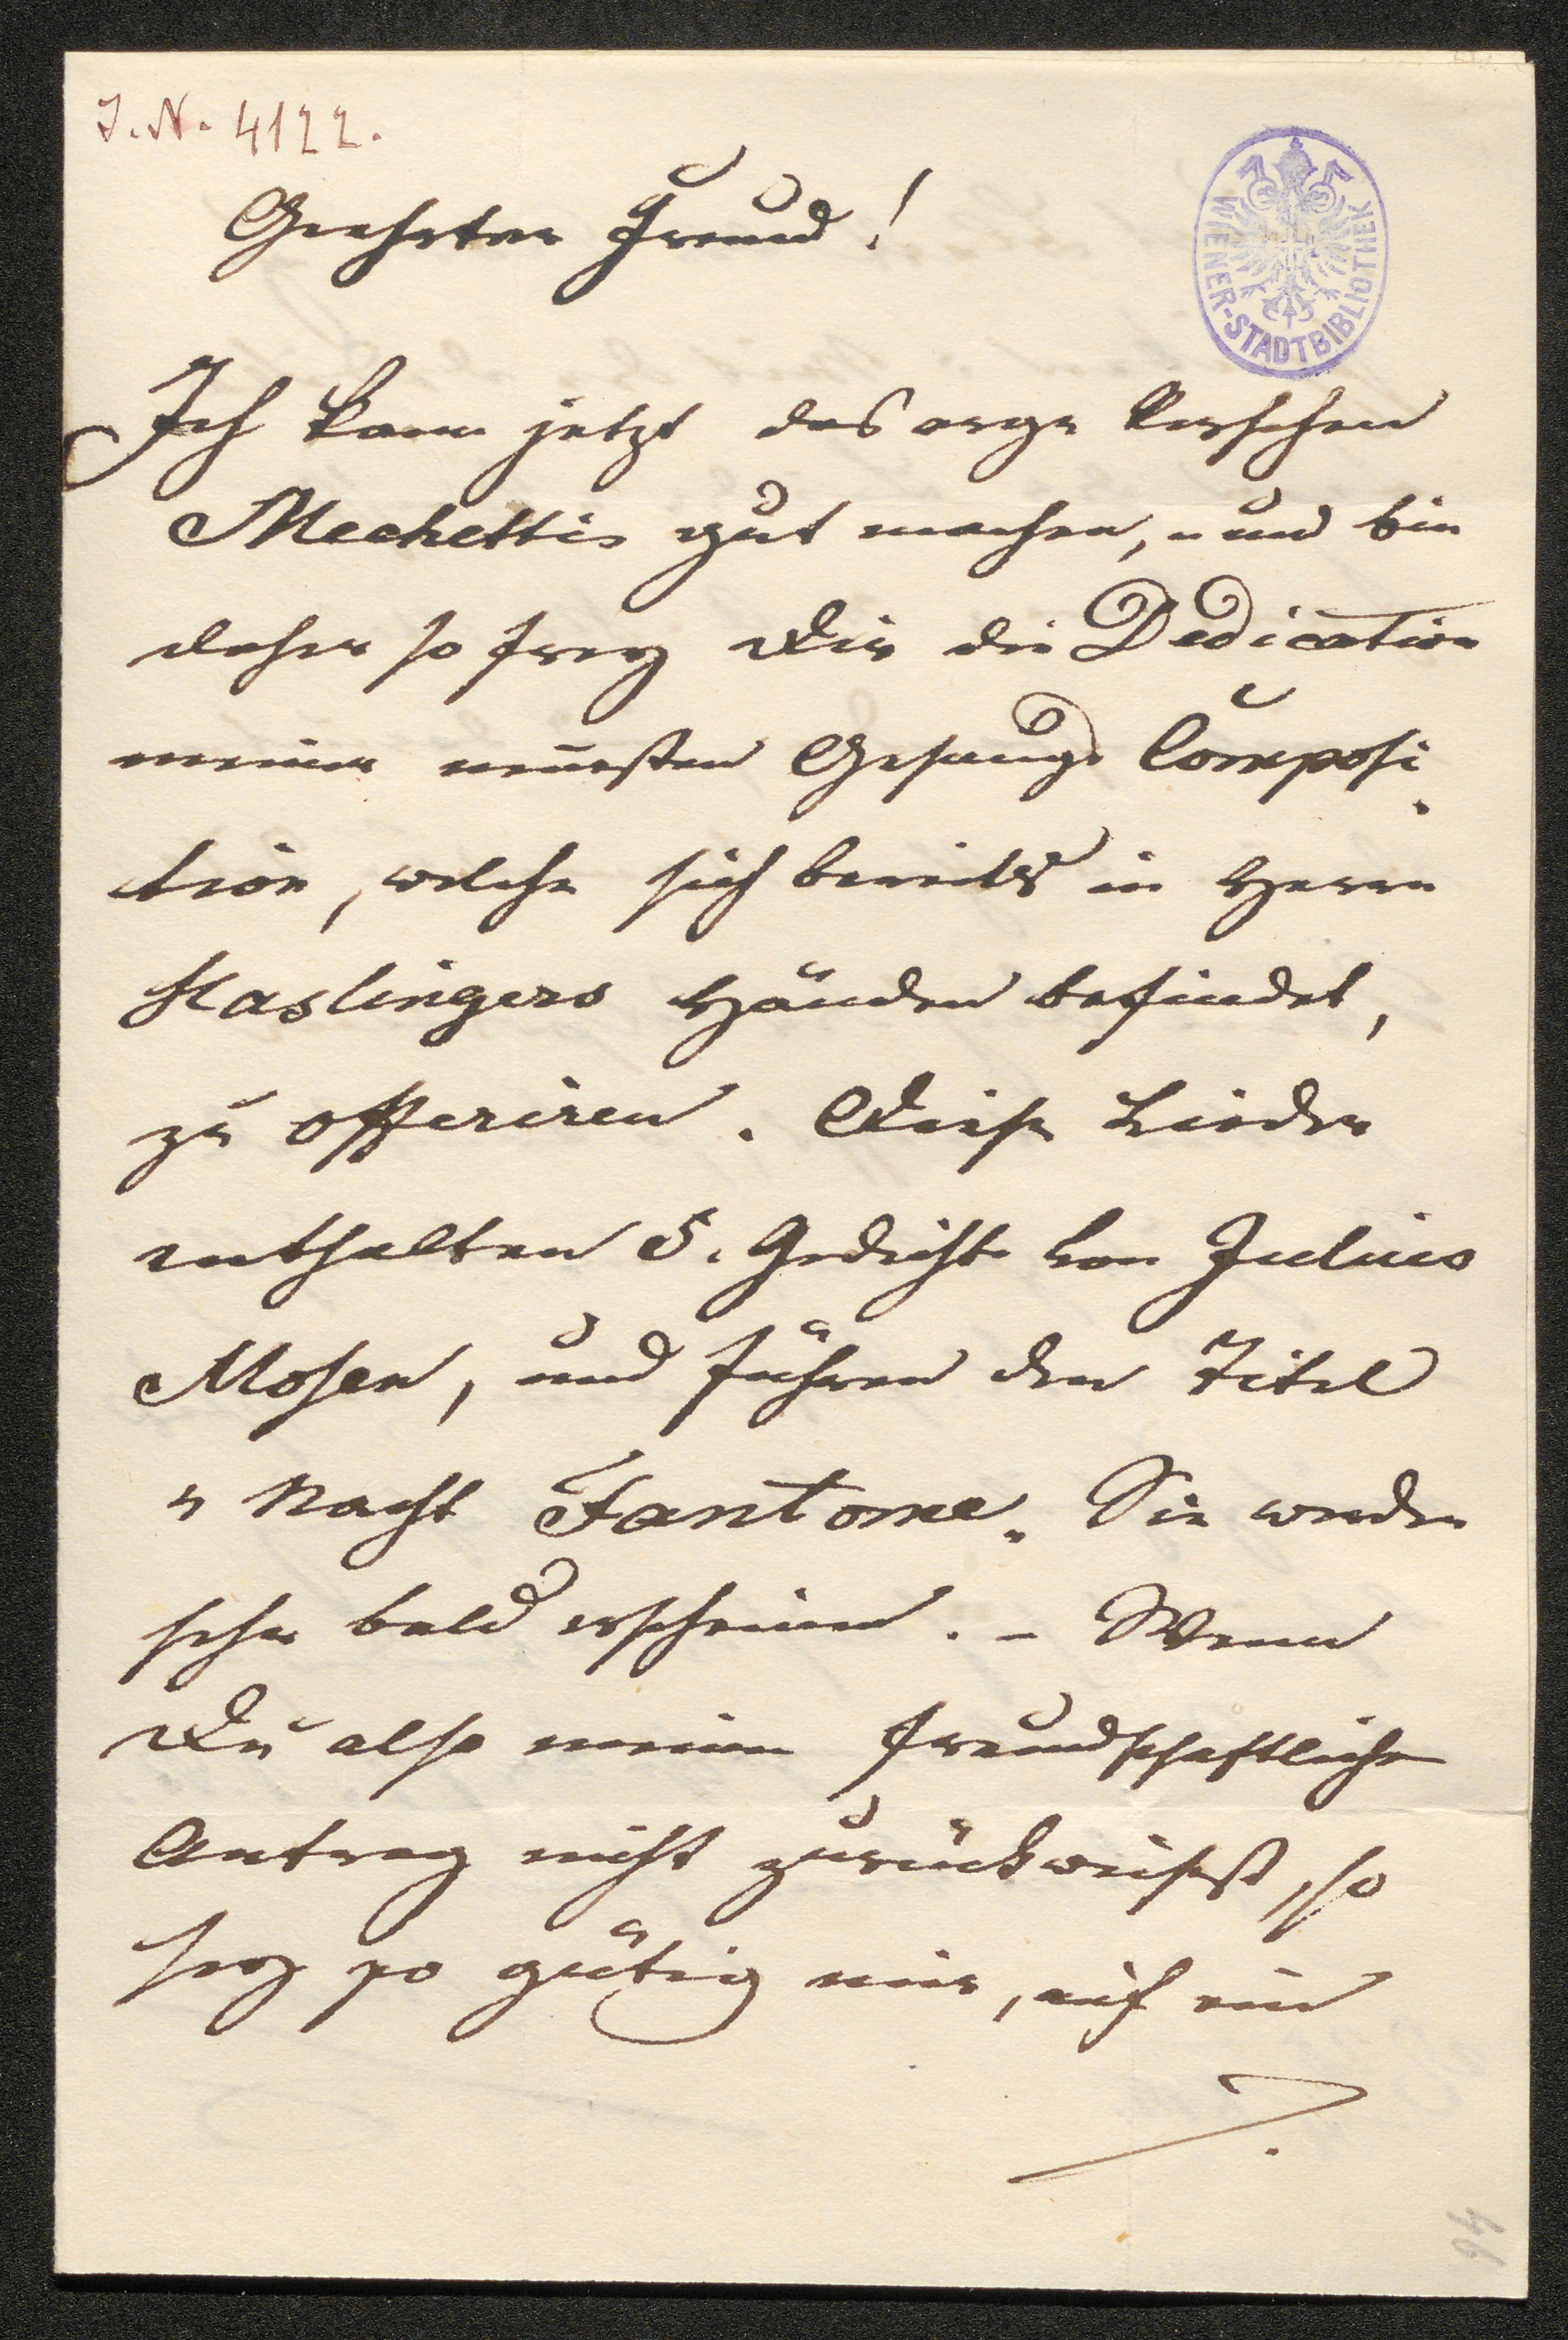 J. N. 4122.
WIENER-STADTBIBLIOTHEK
Geehrter Freund!
Ich kann jetzt das arge Versehen
Mechettis gut machen, und bin
daher so frey Dir die Dedication
meiner neuesten Gesangs Composi
tion, welche sich bereits in Herrn
Haslingers Händen befindet,
zu offeriren. Diese Lieder
enthalten 5. Gedichte von Julius
Mosen, und führen den Titel
"Nacht Fantome" Sie werden
sehr bald erscheinen. – Wenn
Du also meinen freundschaftlichen
Antrag nicht zurückweisest, so
sey so gütig mir, auf ein
94